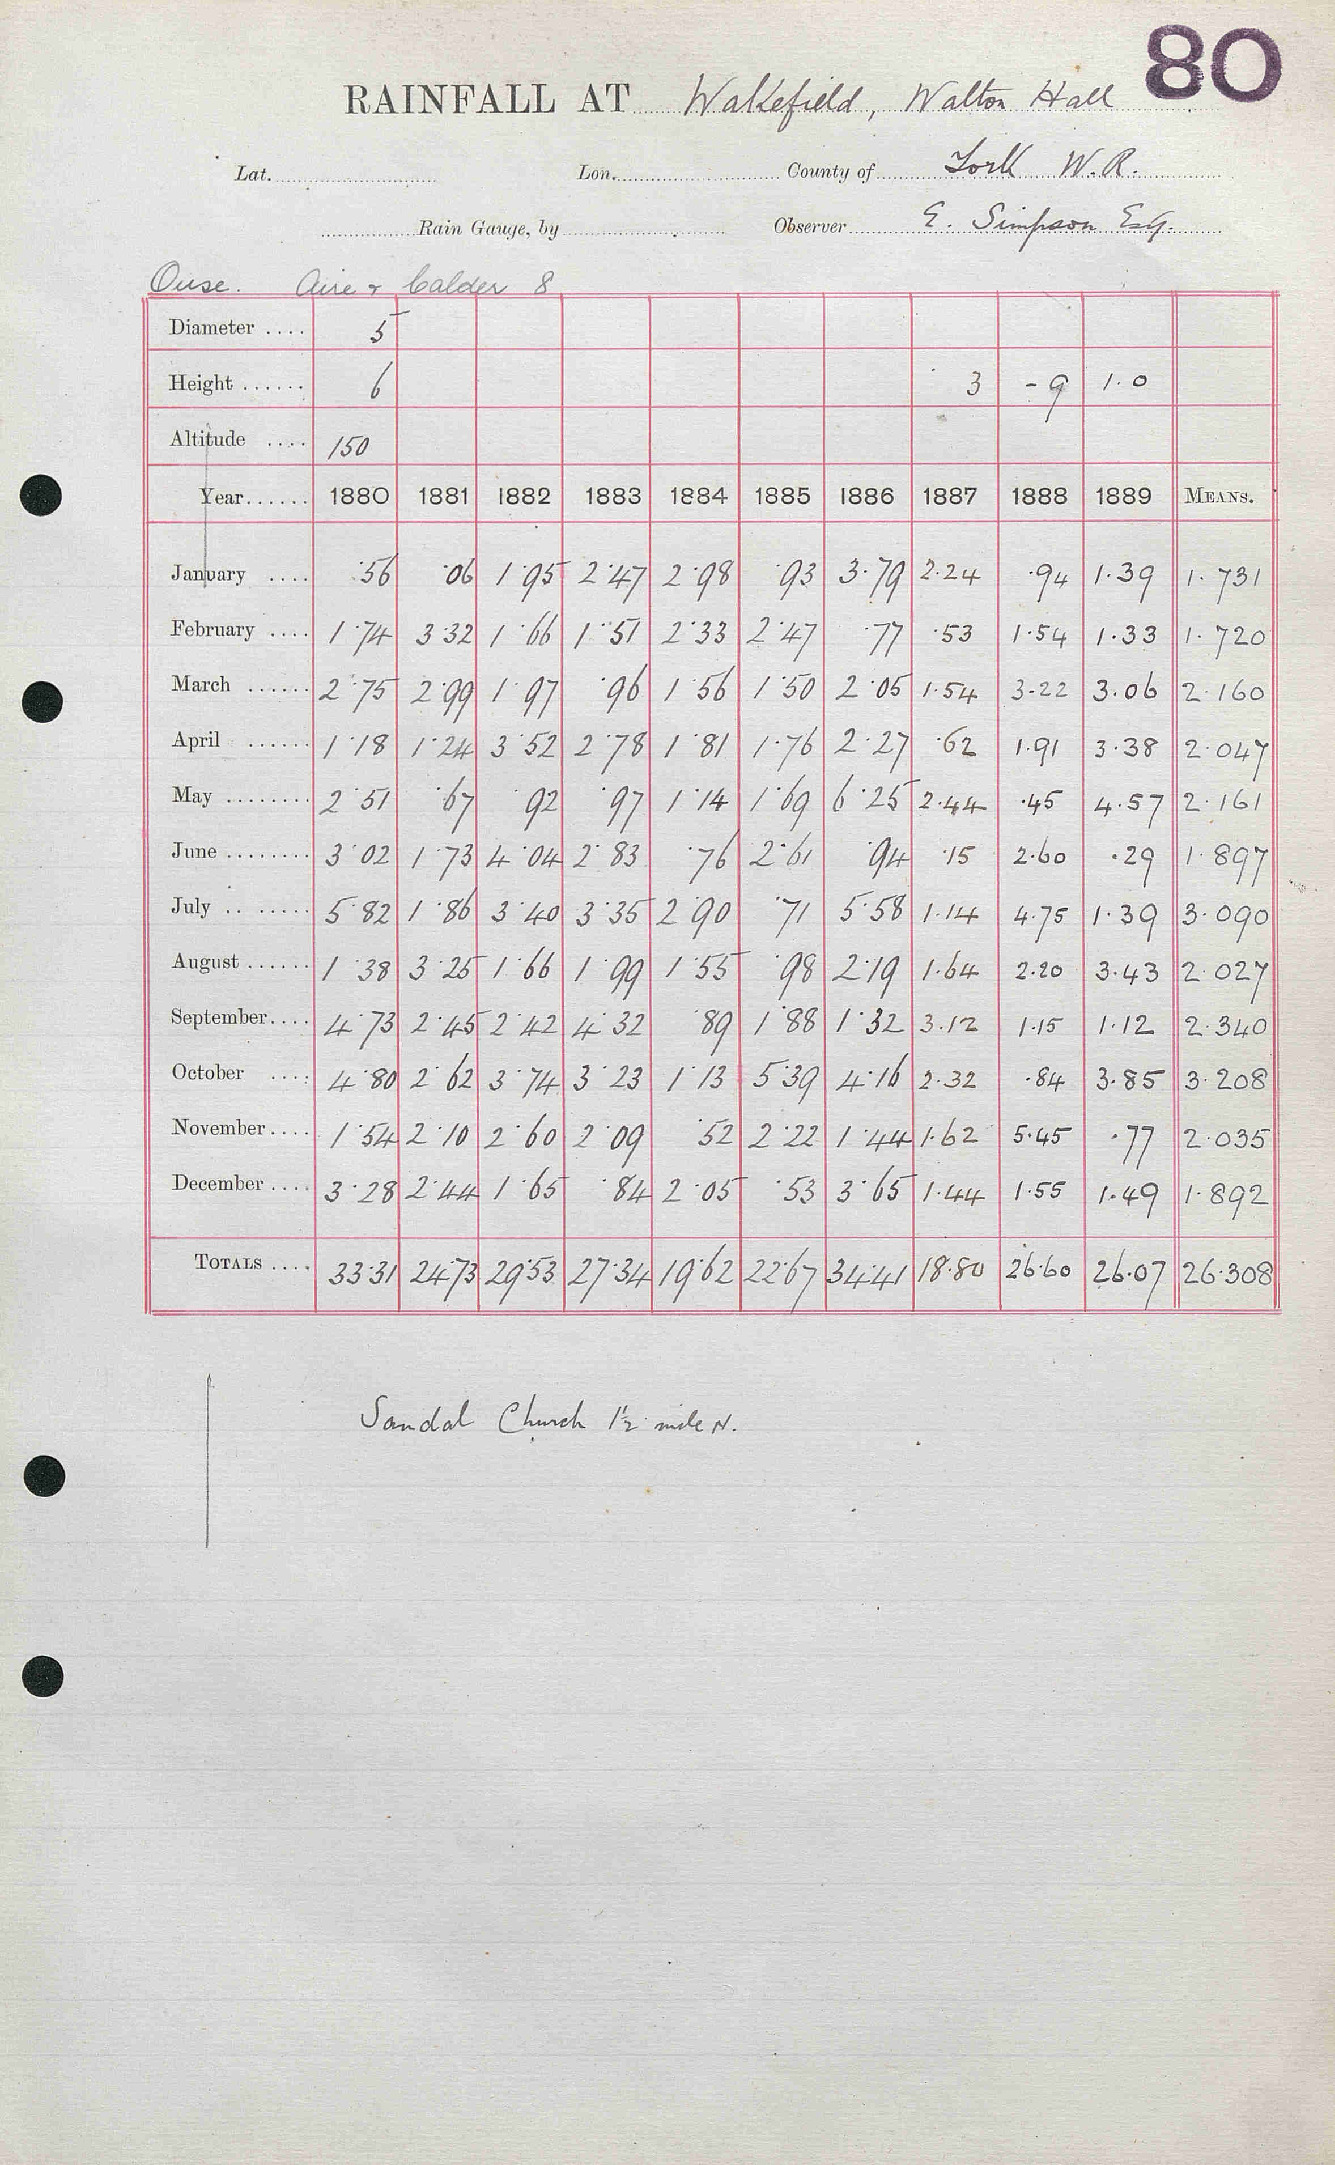 80
RAINFALL AT Wakefield, Walton Hall
Lat. Lon. County of York W.R.
Rain Gauge, by Observer E. Simpson Esq.
Ouse. Aire & Calder 8
Diameter .... 5
Height ...... 6 3 -9 1.0
Altitude .... 150
Year...... 1880 1881 1882 1883 1884 1885 1886 1887 1888 1889 MEANS.
January .... .56 .06 1.95 2.47 2.98 .93 3.79 2.24 .94 1.39 1.731
February .... 1.74 3.32 1.66 1.51 2.33 2.47 .77 .53 1.54 1.33 1.720
March ...... 2.75 2.99 1.97 .96 1.56 1.50 2.05 1.54 3.22 3.06 2.160
April ...... 1.18 1.24 3.52 2.78 1.81 1.76 2.27 .62 1.91 3.38 2.047
May ........ 2.51 .67 .92 .97 1.14 1.69 6.25 2.44 .45 4.57 2.161
June ........ 3.02 1.73 4.04 2.83 .76 2.61 .94 .15 2.60 .29 1.897
July .. ...... 5.82 1.86 3.40 3.35 2.90 .71 5.58 1.14 4.75 1.39 3.090
August ...... 1.38 3.25 1.66 1.99 1.55 .98 2.19 1.64 2.20 3.43 2.027
September.... 4.73 2.45 2.42 4.32 .89 1.88 1.32 3.12 1.15 1.12 2.340
October .... 4.80 2.62 3.74 3.23 1.13 5.39 4.16 2.32 .84 3.85 3.208
November.... 1.54 2.10 2.60 2.09 .52 2.22 1.44 1.62 5.45 .77 2.035
December .... 3.28 2.44 1.65 .84 2.05 .53 3.65 1.44 1.55 1.49 1.892
TOTALS .... 33.31 24.73 29.53 27.34 19.62 22.67 34.41 18.80 26.60 26.07 26.308
Sandal Church 1½ mile N.